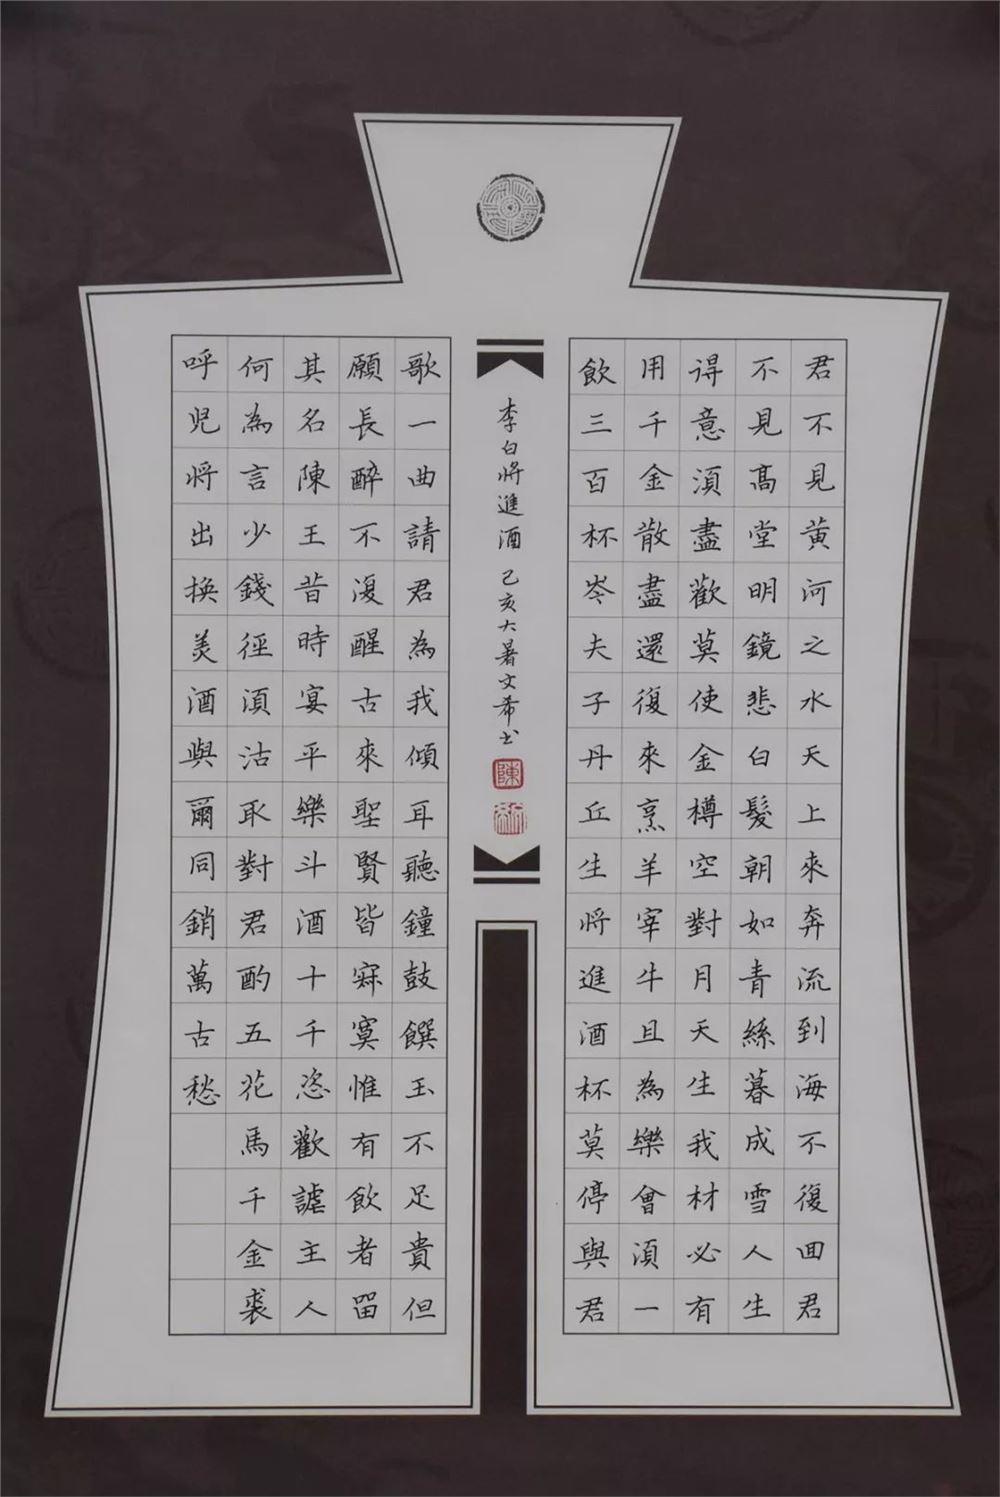 君不見黄河之水天上來奔流到海不復回君
不見高堂明鏡悲白髮朝如青絲暮成雪人生
得意須盡歡莫使金樽空對月天生我材必有
用千金散盡還復來烹羊宰牛且為樂會須一
飲三百杯岑夫子丹丘生將進酒杯莫停與君
李白將進酒 己亥大暑文希书
陳
歌一曲請君為我傾耳聽鐘鼓饌玉不足貴但
願長醉不復醒古來聖賢皆寂寞惟有飲者留
其名陳王昔時宴平樂斗酒十千恣歡謔主人
何為言少錢徑須沽取對君酌五花馬千金裘
呼児將出換美酒與爾同銷萬古愁